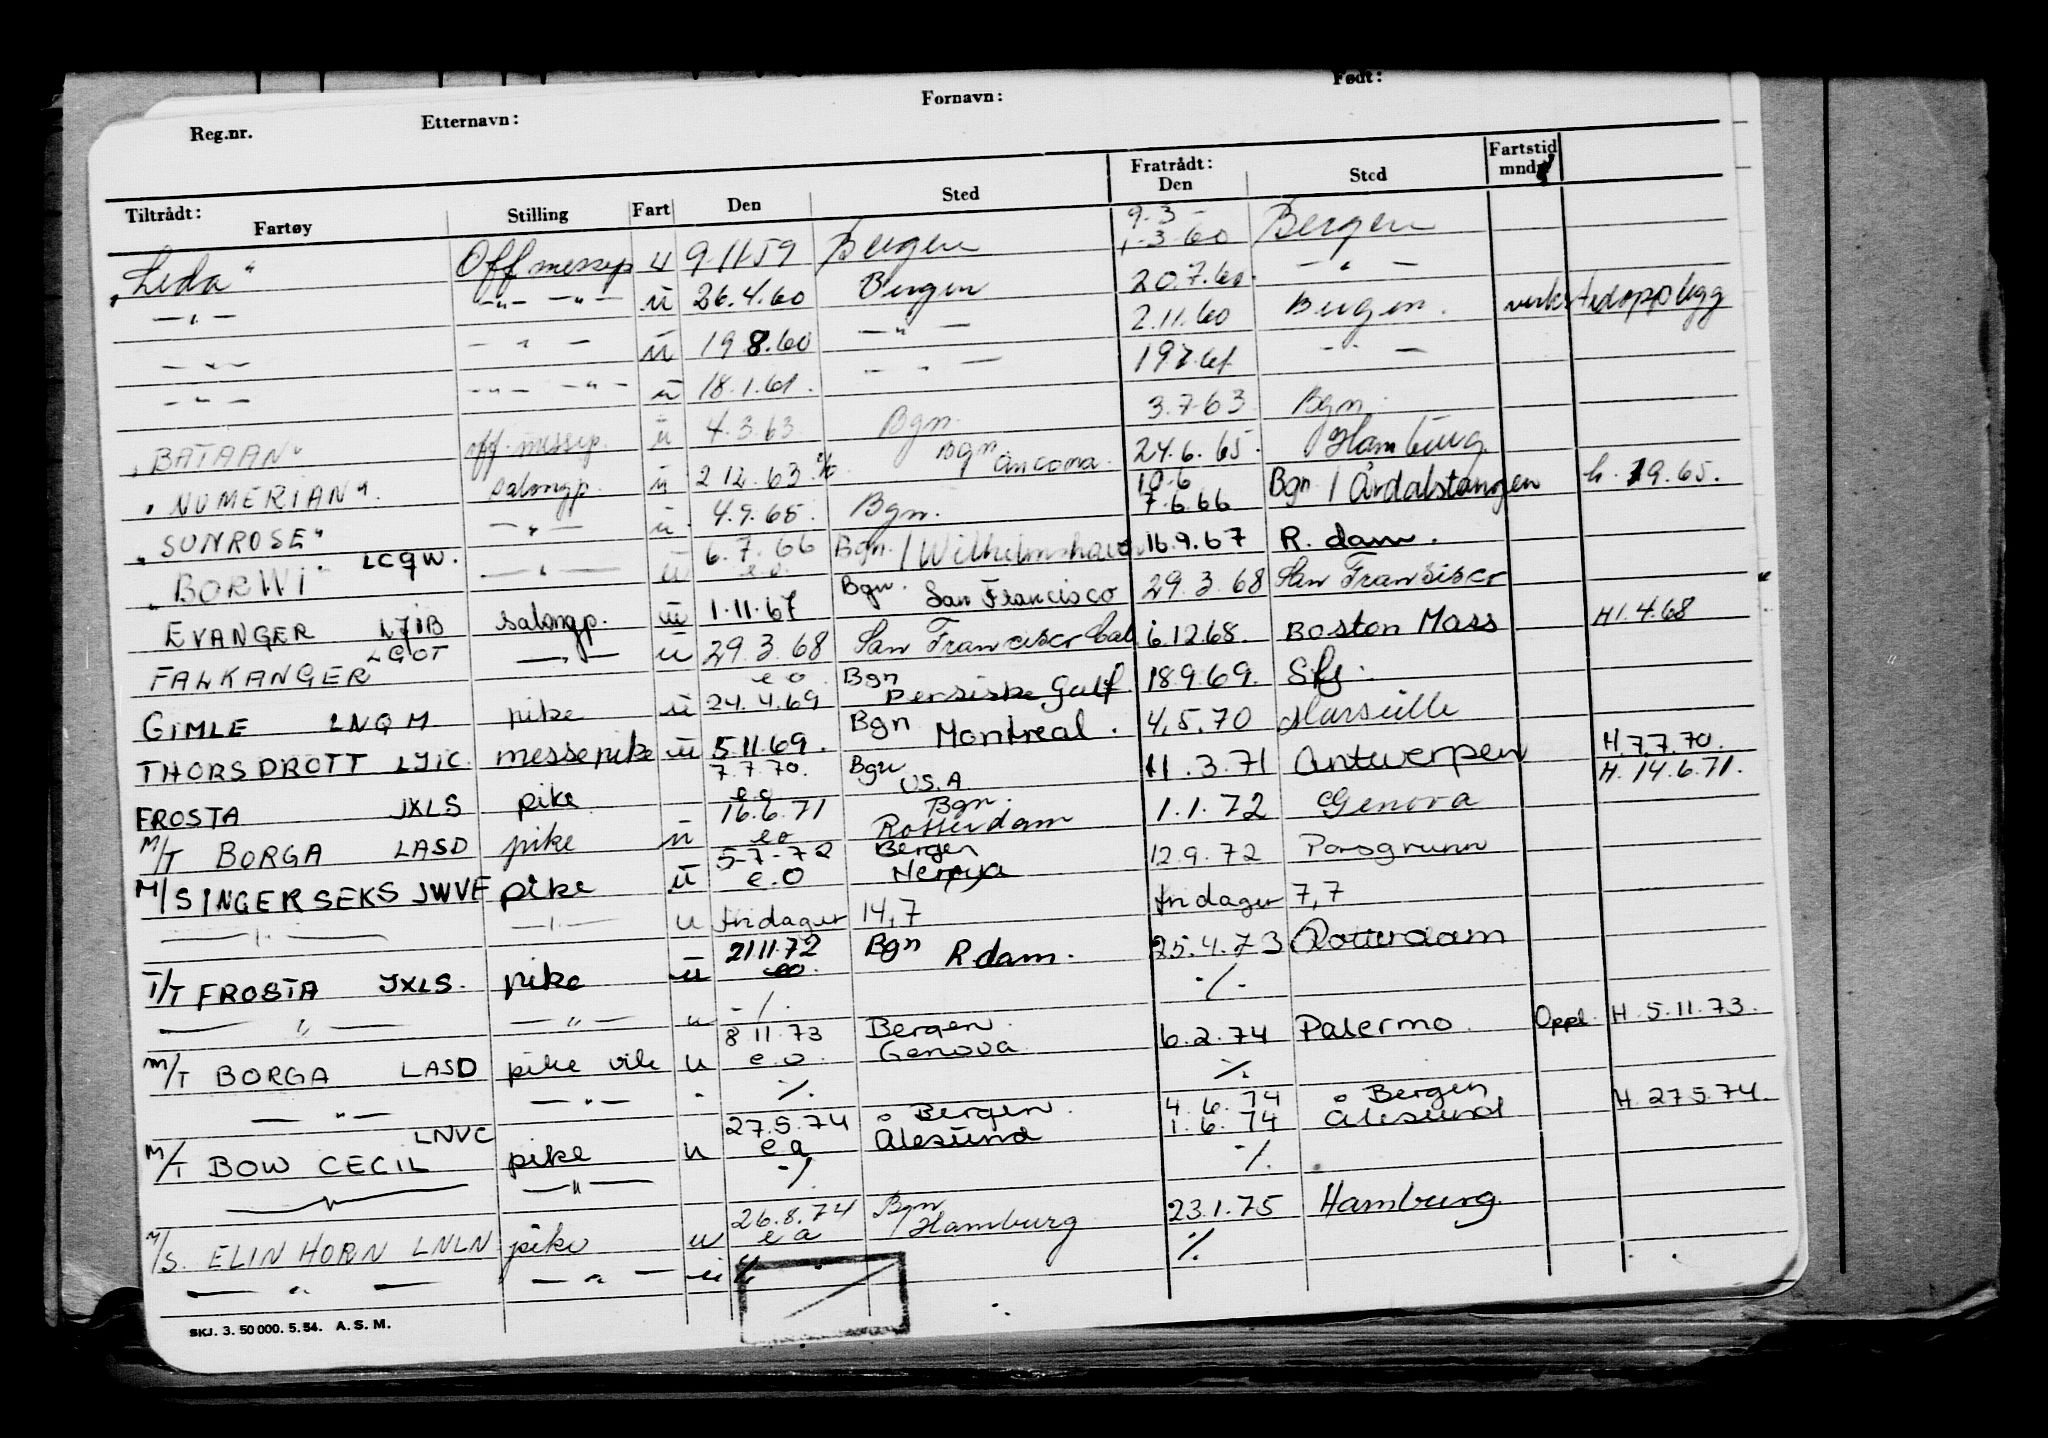 Reg.nr. Etternavn: Fornavn: Født:
Tiltrådt: Fratrådt: Fartstid
Fartøy Stilling Fart Den Sted Den Sted mndr.
"Leda" Off messep u 9-11-59 Bergen 9-3- 1-3-60 Bergen
—"— -"- -"- u 26.4.60 Bergen 20.7.60. — " —
—"— — " — u 19 8.60 — " — 2.11.60 Bergen. verkstedopplegg
—"— -"- -"- u 18.1.61. — " — 19 7.61. — " —
"BATAAN" off. messep. u 4.3.63 Bgn. 3.7.63 Bgn.
"NUMERIAN". salongp. u 2 12.63 Bgn Ancona. 24.6.65. Hamburg
"SUNROSE" —"— u 4.9.65. Bgn. 10.6 7.6.66 Bgn / Årdalstangen h. 1.9.65.
"BORWI" LCQW. — " — u 6.7.66 e.o. Bgn. / Wilhelmshaven 16.9.67 R.dam.
EVANGER LJIB salongp. u 1.11.67 Bgn. San Francisco 29.3.68 San Fransisco
FALKANGER LGOT —"— u 29.3.68 San Francisco Cal 6.1268. Boston Mass H1.4.68
GIMLE LNQM pike u e o 24.4.69 Bgn Persiske Galf 18969. Sfj.
THORSDROTT LJIC messepike u 5.11.69. Bgn Montreal. 4.5.70 Marseille
FROSTA JXLS pike 7.7.70. e o Bgn U.S.A 11.3.71 Antwerpen H.7.7.70.
M/T BORGA LASD pike u 16.6.71 e o Bgn. Rotterdam 1.1.72 Genova H. 14.6.71.
M/S INGERSEKS JWVF pike u 5-7-72 e.o Bergen 12.9.72 Porsgrunn
—"— —"— u fridager 14,7 fridager 7,7
T/T FROSTA JXLS. pike u 21.11.72 eo. Bgn R dam. 25.4.73 Rotterdam
— " — — " — u -/. -/-
M/T BORGA LASD pike vik u 8 11.73 e.o. Bergen. Genova 6.2.74 Palermo. Oppl. H. 5.11.73.
— " — — " — - ./. ./.
M/T BOW CECIL LNVC pike u 27.5.74 e a Bergen. Ålesund 4.6.74 1.6.74 Bergen Ålesund H. 27.5.74.
—"— —"— -/. -/.
M/S. ELIN HORN LNLN pike u 26.8.74 e a Bgn / Hamburg 23.1.75 Hamburg
— " — — " — u ./. ./.
SKJ. 3. 50 000. 5. 54. A. S. M.